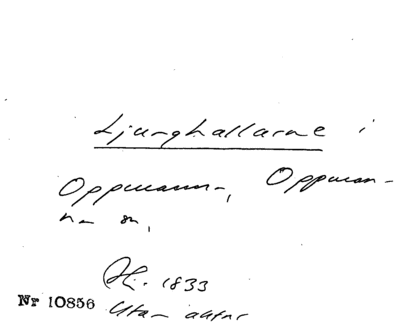 Ljunghallarne i
Oppmanna-, Oppman-
na sn,
Afr. 1833
Nr 10856 Utan aktnr